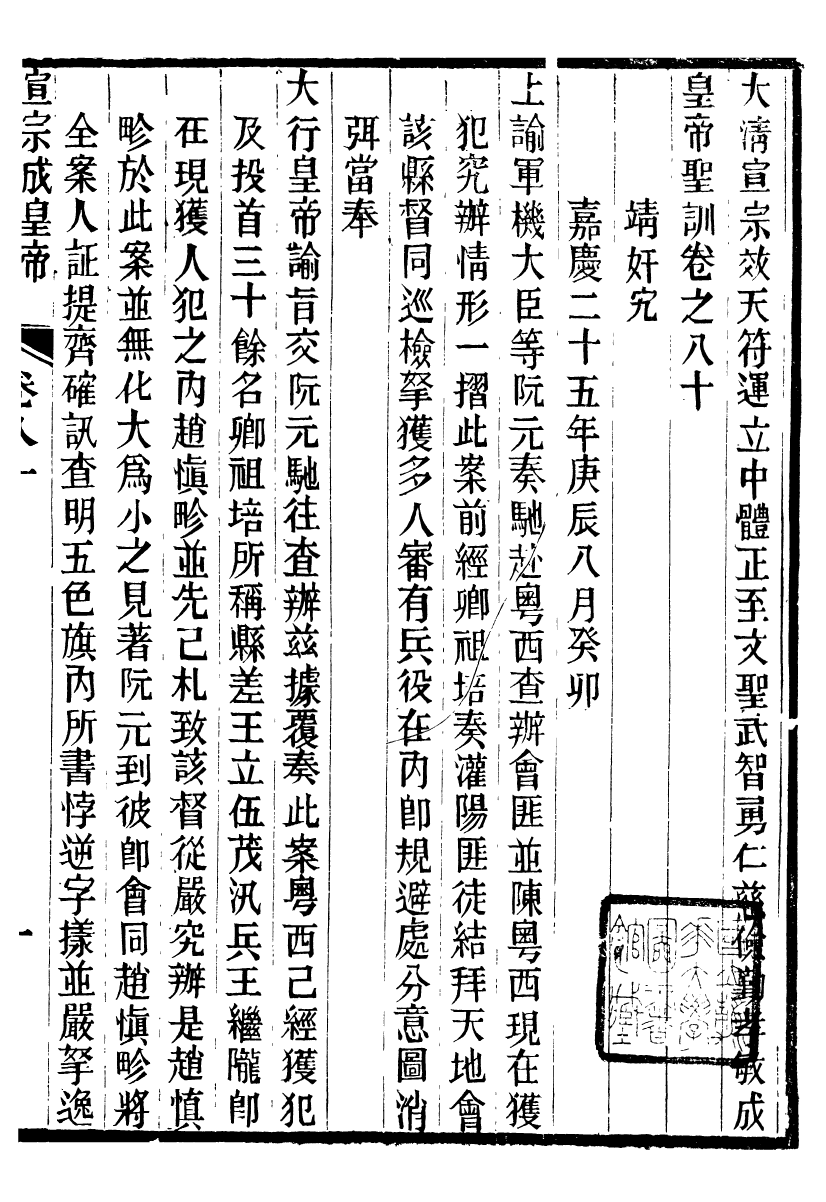 大淸宣宗效天符運立中體正至文聖武智勇仁慈儉勤孝敏成
皇帝聖訓卷之八十
靖奸宄
嘉慶二十五年庚辰八月癸卯
上諭軍機大臣等阮元奏馳赴粵西查辦會匪並陳粵西現在獲
犯究辦情形一摺此案前經卿祖培奏灌陽匪徒結拜天地會
該縣督同巡檢拏獲多人審有兵役在內卽規避處分意圖消
弭當奉
大行皇帝諭旨交阮元馳往查辦茲據覆奏此案粵西已經獲犯
及投首三十餘名卿祖培所稱縣差王立伍茂汛兵王繼隴卽
在現獲人犯之內趙愼畛並先已札致該督從嚴究辦是趙愼
畛於此案並無化大爲小之見著阮元到彼卽會同趙愼畛將
全案人証提齊確訊查明五色旗內所書悖逆字樣並嚴拏逸
宣宗成皇帝
卷八十
一